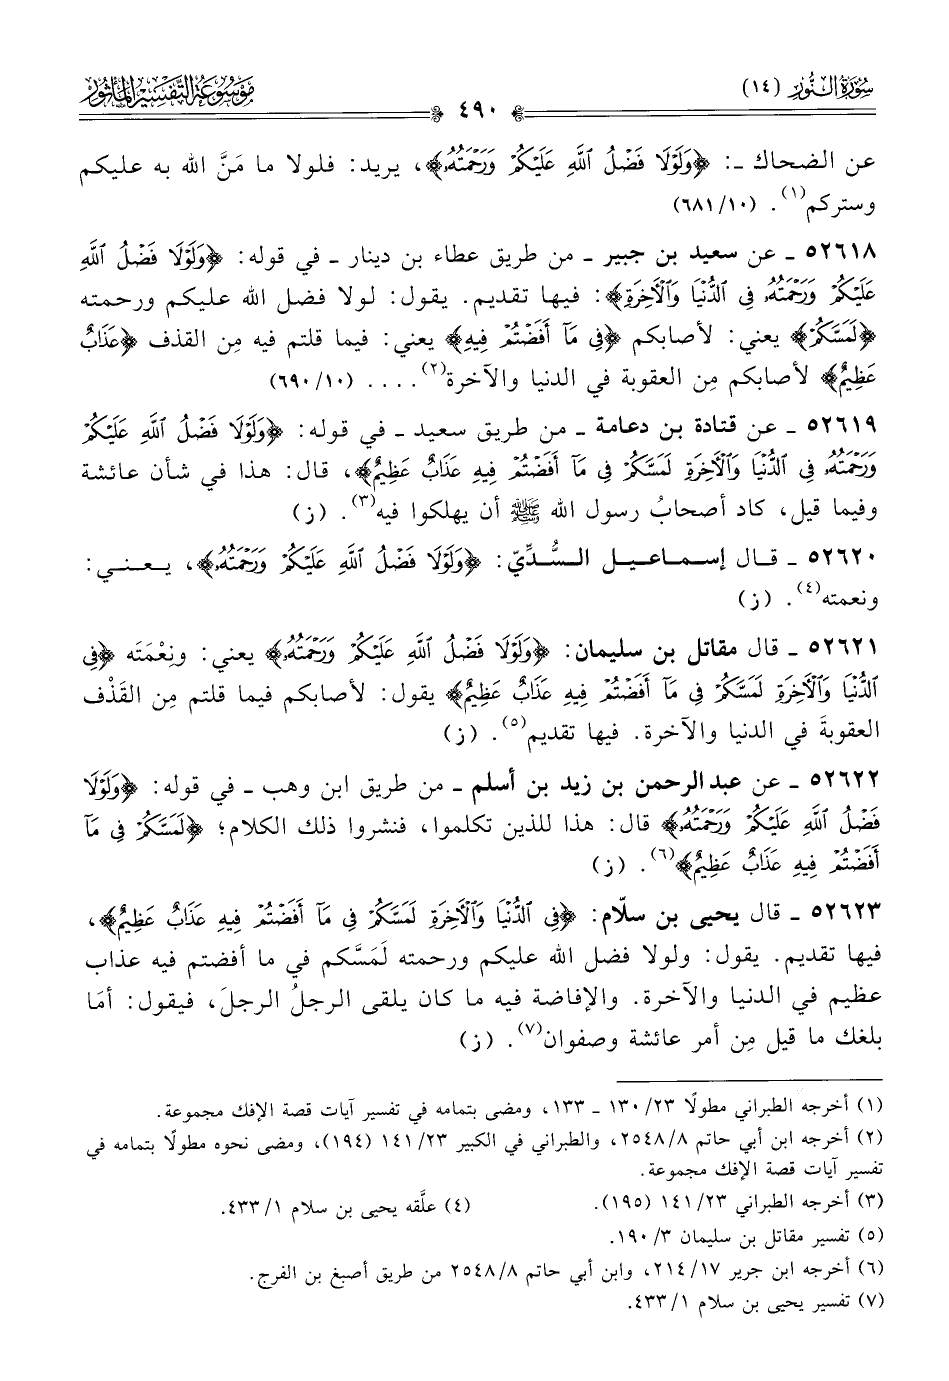 سُورَةُ النُّورِ (١٤)
٤٩٠
مَوْسُوعَةُ التَّفْسِيرِ المَأْثُورِ
عن الضحاك ـ: ﴿وَلَوْلَا فَضْلُ ٱللَّهِ عَلَيْكُمْ وَرَحْمَتُهُۥ﴾، يريد: فلولا ما مَنَّ الله به عليكم
وستركم(١). (٦٨١/١٠)
٥٢٦١٨ ـ عن سعيد بن جبير ـ من طريق عطاء بن دينار ـ في قوله: ﴿وَلَوْلَا فَضْلُ ٱللَّهِ
عَلَيْكُمْ وَرَحْمَتُهُۥ فِى ٱلدُّنْيَا وَٱلْأَخِرَةِ﴾: فيها تقديم. يقول: لولا فضل الله عليكم ورحمته
﴿لَمَسَّكُمْ﴾ يعني: لأصابكم ﴿فِى مَآ أَفَضْتُمْ فِيهِ﴾ يعني: فيما قلتم فيه مِن القذف ﴿عَذَابٌ
عَظِيمٌ﴾ لأصابكم مِن العقوبة في الدنيا والآخرة(٢).... (٦٩٠/١٠)
٥٢٦١٩ ـ عن قتادة بن دعامة ـ من طريق سعيد ـ في قوله: ﴿وَلَوْلَا فَضْلُ ٱللَّهِ عَلَيْكُمْ
وَرَحْمَتُهُۥ فِى ٱلدُّنْيَا وَٱلْأَخِرَةِ لَمَسَّكُمْ فِى مَآ أَفَضْتُمْ فِيهِ عَذَابٌ عَظِيمٌ﴾، قال: هذا في شأن عائشة
وفيما قيل، كاد أصحابُ رسول الله ﷺ أن يهلكوا فيه(٣). (ز)
٥٢٦٢٠ ـ قال إسماعيل السُّدِّيّ: ﴿وَلَوْلَا فَضْلُ ٱللَّهِ عَلَيْكُمْ وَرَحْمَتُهُۥ﴾، يعني:
ونعمته(٤). (ز)
٥٢٦٢١ ـ قال مقاتل بن سليمان: ﴿وَلَوْلَا فَضْلُ ٱللَّهِ عَلَيْكُمْ وَرَحْمَتُهُۥ﴾ يعني: ونِعْمَتَه ﴿فِى
ٱلدُّنْيَا وَٱلْأَخِرَةِ لَمَسَّكُمْ فِى مَآ أَفَضْتُمْ فِيهِ عَذَابٌ عَظِيمٌ﴾ يقول: لأصابكم فيما قلتم مِن القَذْف
العقوبةَ في الدنيا والآخرة. فيها تقديم(٥). (ز)
٥٢٦٢٢ ـ عن عبد الرحمن بن زيد بن أسلم ـ من طريق ابن وهب ـ في قوله: ﴿وَلَوْلَا
فَضْلُ ٱللَّهِ عَلَيْكُمْ وَرَحْمَتُهُۥ﴾ قال: هذا للذين تكلموا، فنشروا ذلك الكلام؛ ﴿لَمَسَّكُمْ فِى مَآ
أَفَضْتُمْ فِيهِ عَذَابٌ عَظِيمٌ﴾(٦). (ز)
٥٢٦٢٣ ـ قال يحيى بن سلّام: ﴿فِى ٱلدُّنْيَا وَٱلْأَخِرَةِ لَمَسَّكُمْ فِى مَآ أَفَضْتُمْ فِيهِ عَذَابٌ عَظِيمٌ﴾،
فيها تقديم. يقول: ولولا فضل الله عليكم ورحمته لَمَسَّكم في ما أفضتم فيه عذاب
عظيم في الدنيا والآخرة. والإفاضة فيه ما كان يلقى الرجلُ الرجلَ، فيقول: أمَا
بلغك ما قيل مِن أمر عائشة وصفوان(٧). (ز)
(١) أخرجه الطبراني مطولًا ٢٣/ ١٣٠ ـ ١٣٣، ومضى بتمامه في تفسير آيات قصة الإفك مجموعة.
(٢) أخرجه ابن أبي حاتم ٨/ ٢٥٤٨، والطبراني في الكبير ٢٣/ ١٤١ (١٩٤)، ومضى نحوه مطولًا بتمامه في
تفسير آيات قصة الإفك مجموعة.
(٣) أخرجه الطبراني ٢٣/ ١٤١ (١٩٥). (٤) علَّقه يحيى بن سلام ١/ ٤٣٣.
(٥) تفسير مقاتل بن سليمان ٣/ ١٩٠.
(٦) أخرجه ابن جرير ١٧/ ٢١٤، وابن أبي حاتم ٨/ ٢٥٤٨ من طريق أصبغ بن الفرج.
(٧) تفسير يحيى بن سلام ١/ ٤٣٣.